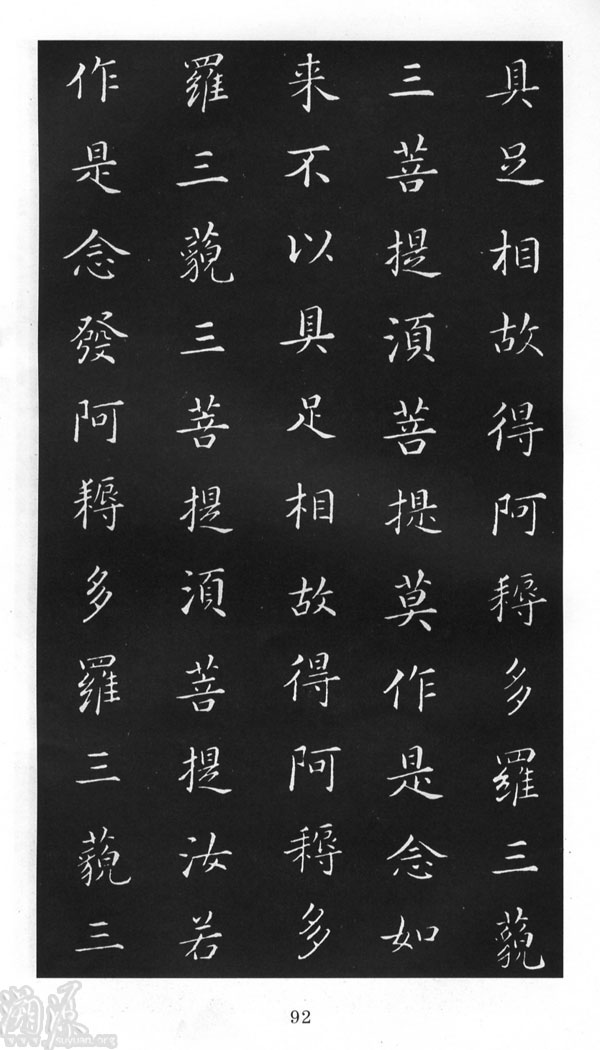 具足相故得阿耨多羅三藐
三菩提須菩提莫作是念如
来不以具足相故得阿耨多
羅三藐三菩提須菩提汝若
作是念發阿耨多羅三藐三
92
溯源
suyuan.org